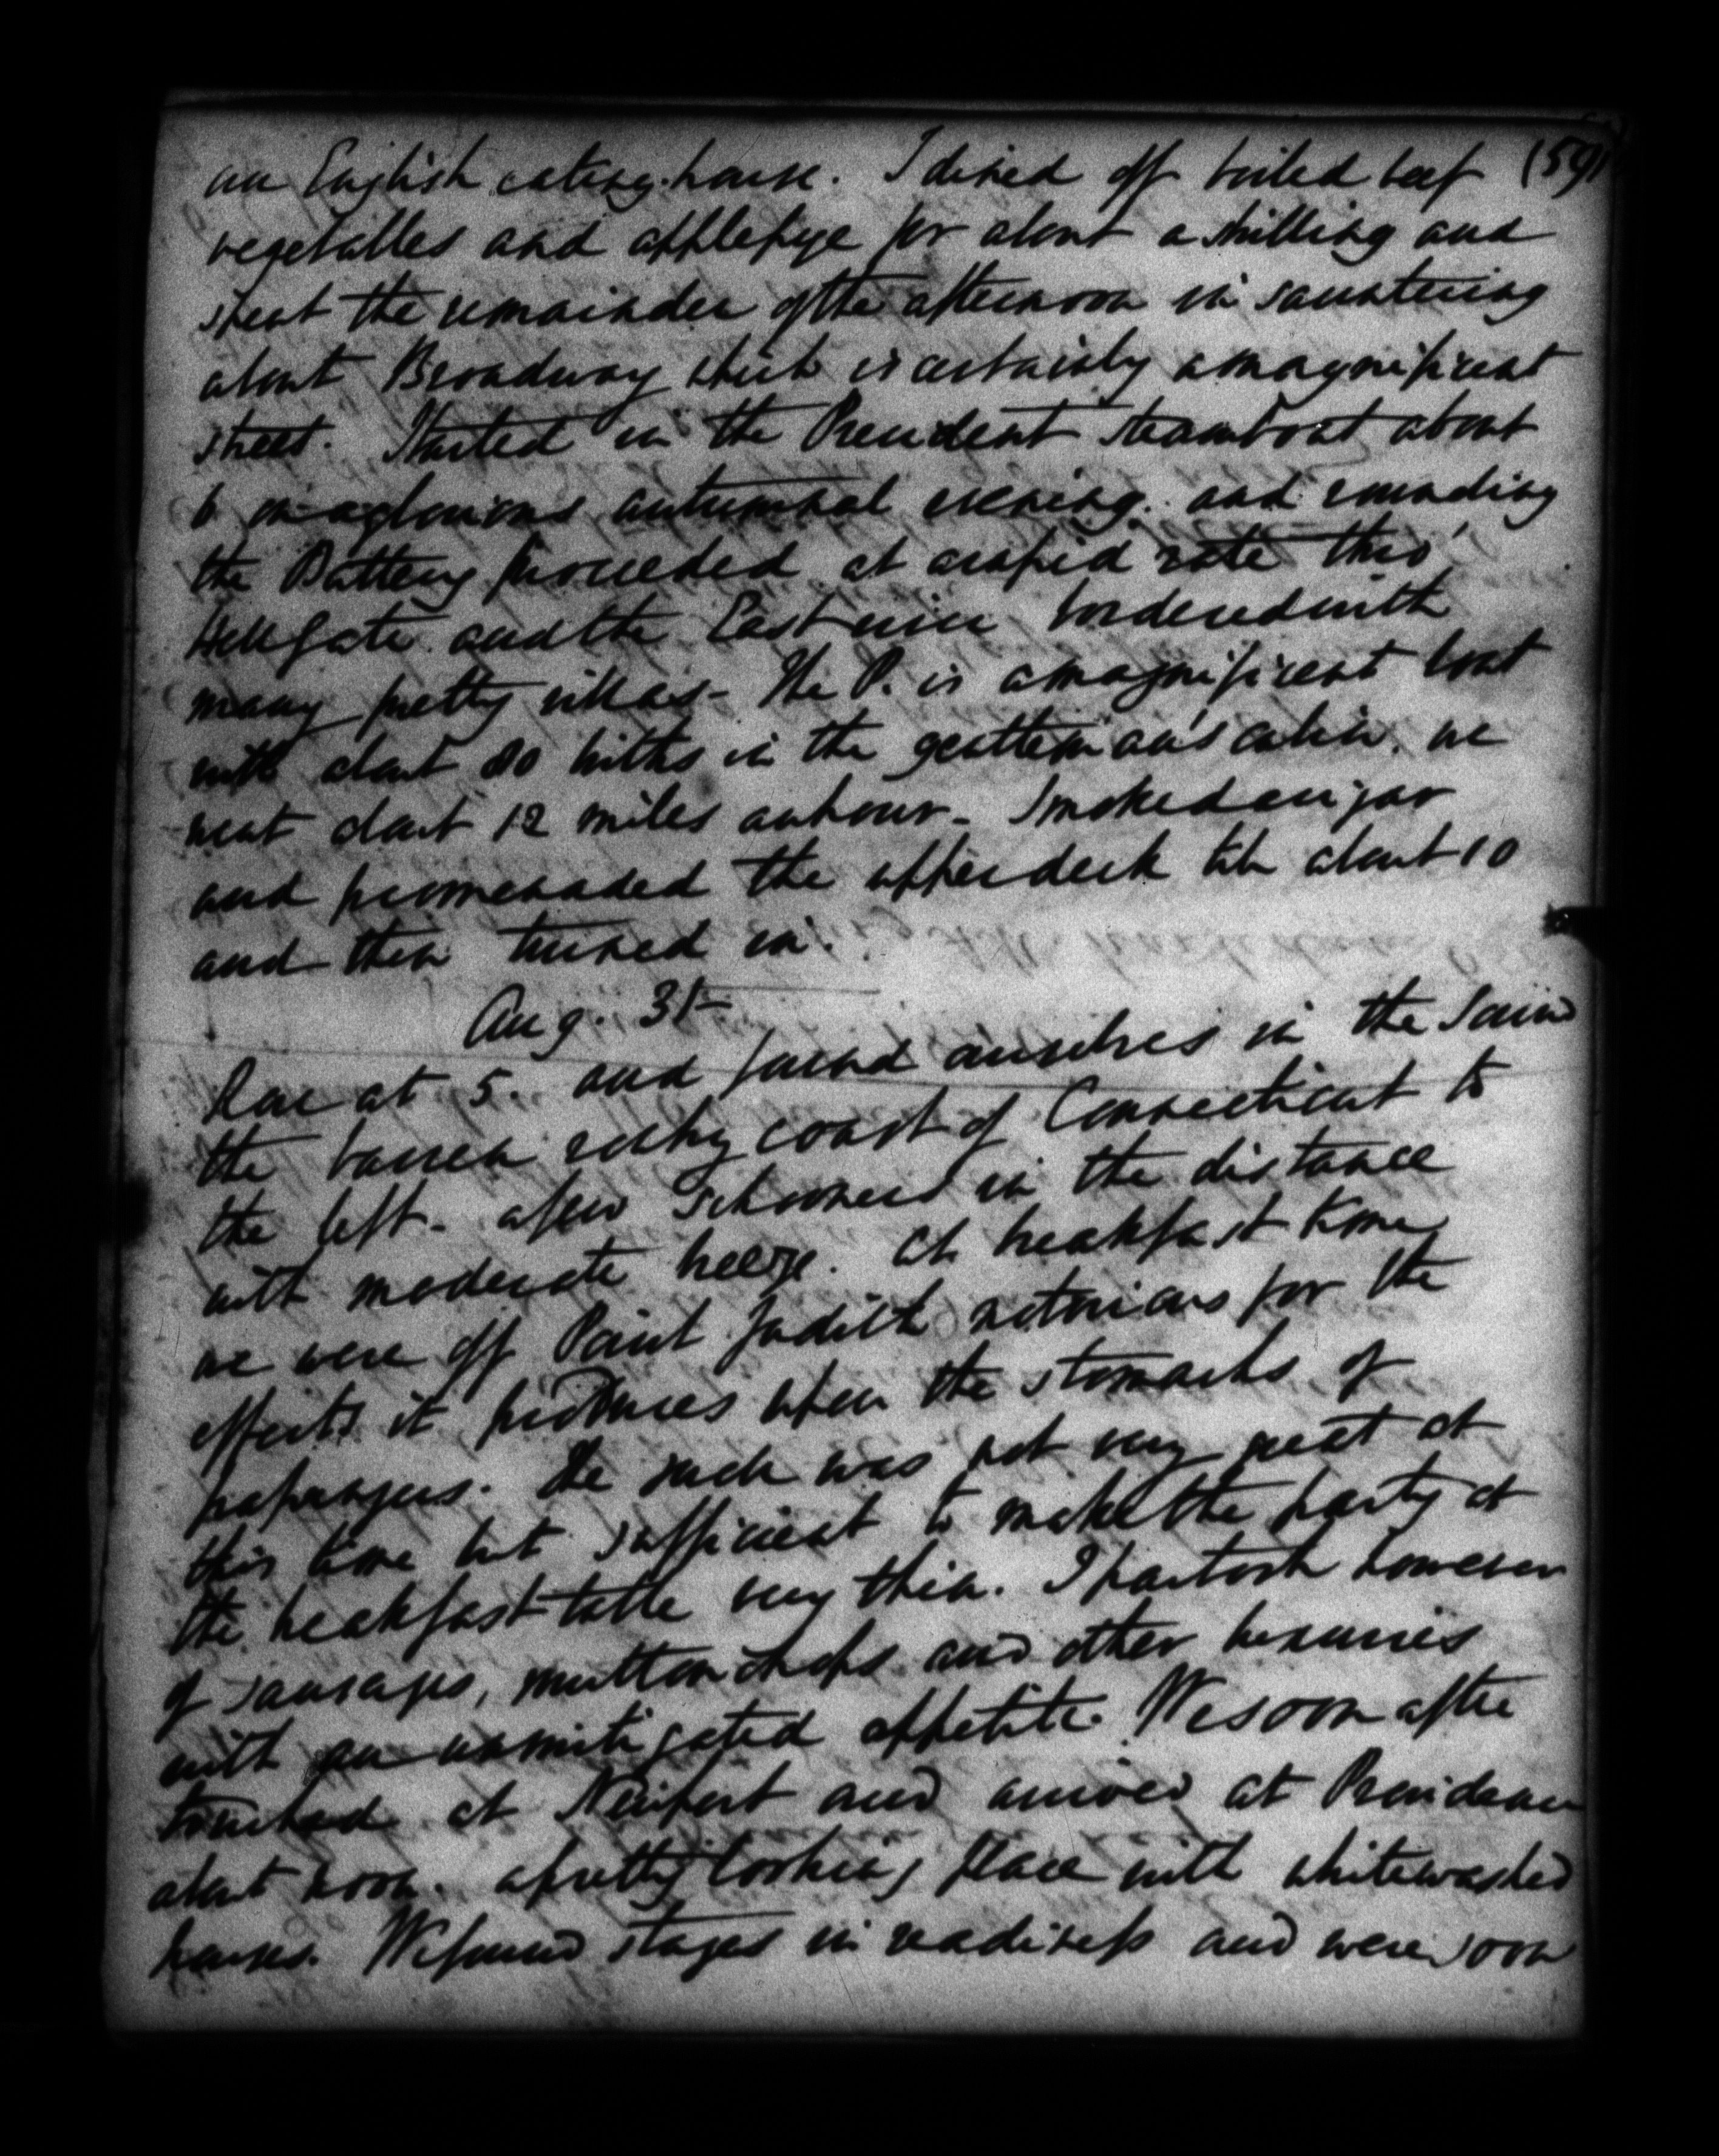 (59)
an English eating-house. I dined off boiled beef
vegetables and applepye for about a shilling and
spent the remainder of the afternoon in sauntering
about Broadway which is certainly a magnificent
street. Started in the President steamboat about
6 on a glorious autumnal evening. and rounding
the Battery proceeded at a rapid rate thro'
Hellgate and the East river bordered with
many pretty villas - The P. is a magnificent boat
with about 80 births in the gentleman's cabin. we
went about 12 miles an hour - Smoked a cigar
and promenaded the upper deck till about 10
and then turned in.
Aug. 31
Rose at 5. and found ourselves in the Sound
the barren rocky coast of Connecticut to
the left - a few schooners in the distance
with moderate breeze. At breakfast time
we were off Point Judith notorious for the
effects it produces upon the stomachs of
passengers. The swell was not very great at
this time but sufficient to make the party at
the breakfast table very thin. I partook however
of sausages, mutton chops and other luxuries
with an unmitigated appetite. We soon after
touched at Newport and arrived at Providence
about noon. a pretty looking place with whitewashed
houses. We found stages in readiness and were soon